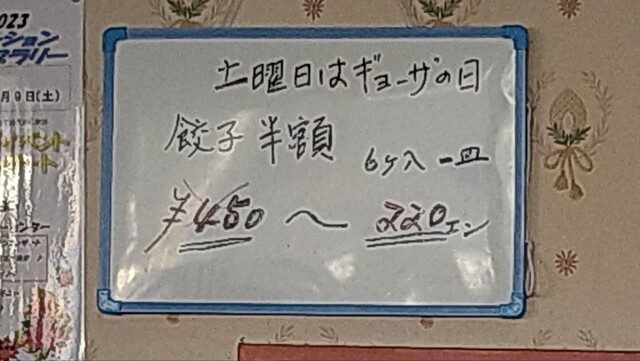 2023
ション
ラリー
月9日(土)
土曜日はギョーザの日
餃子半額 6ケ入 一皿
¥450 〜 220エン